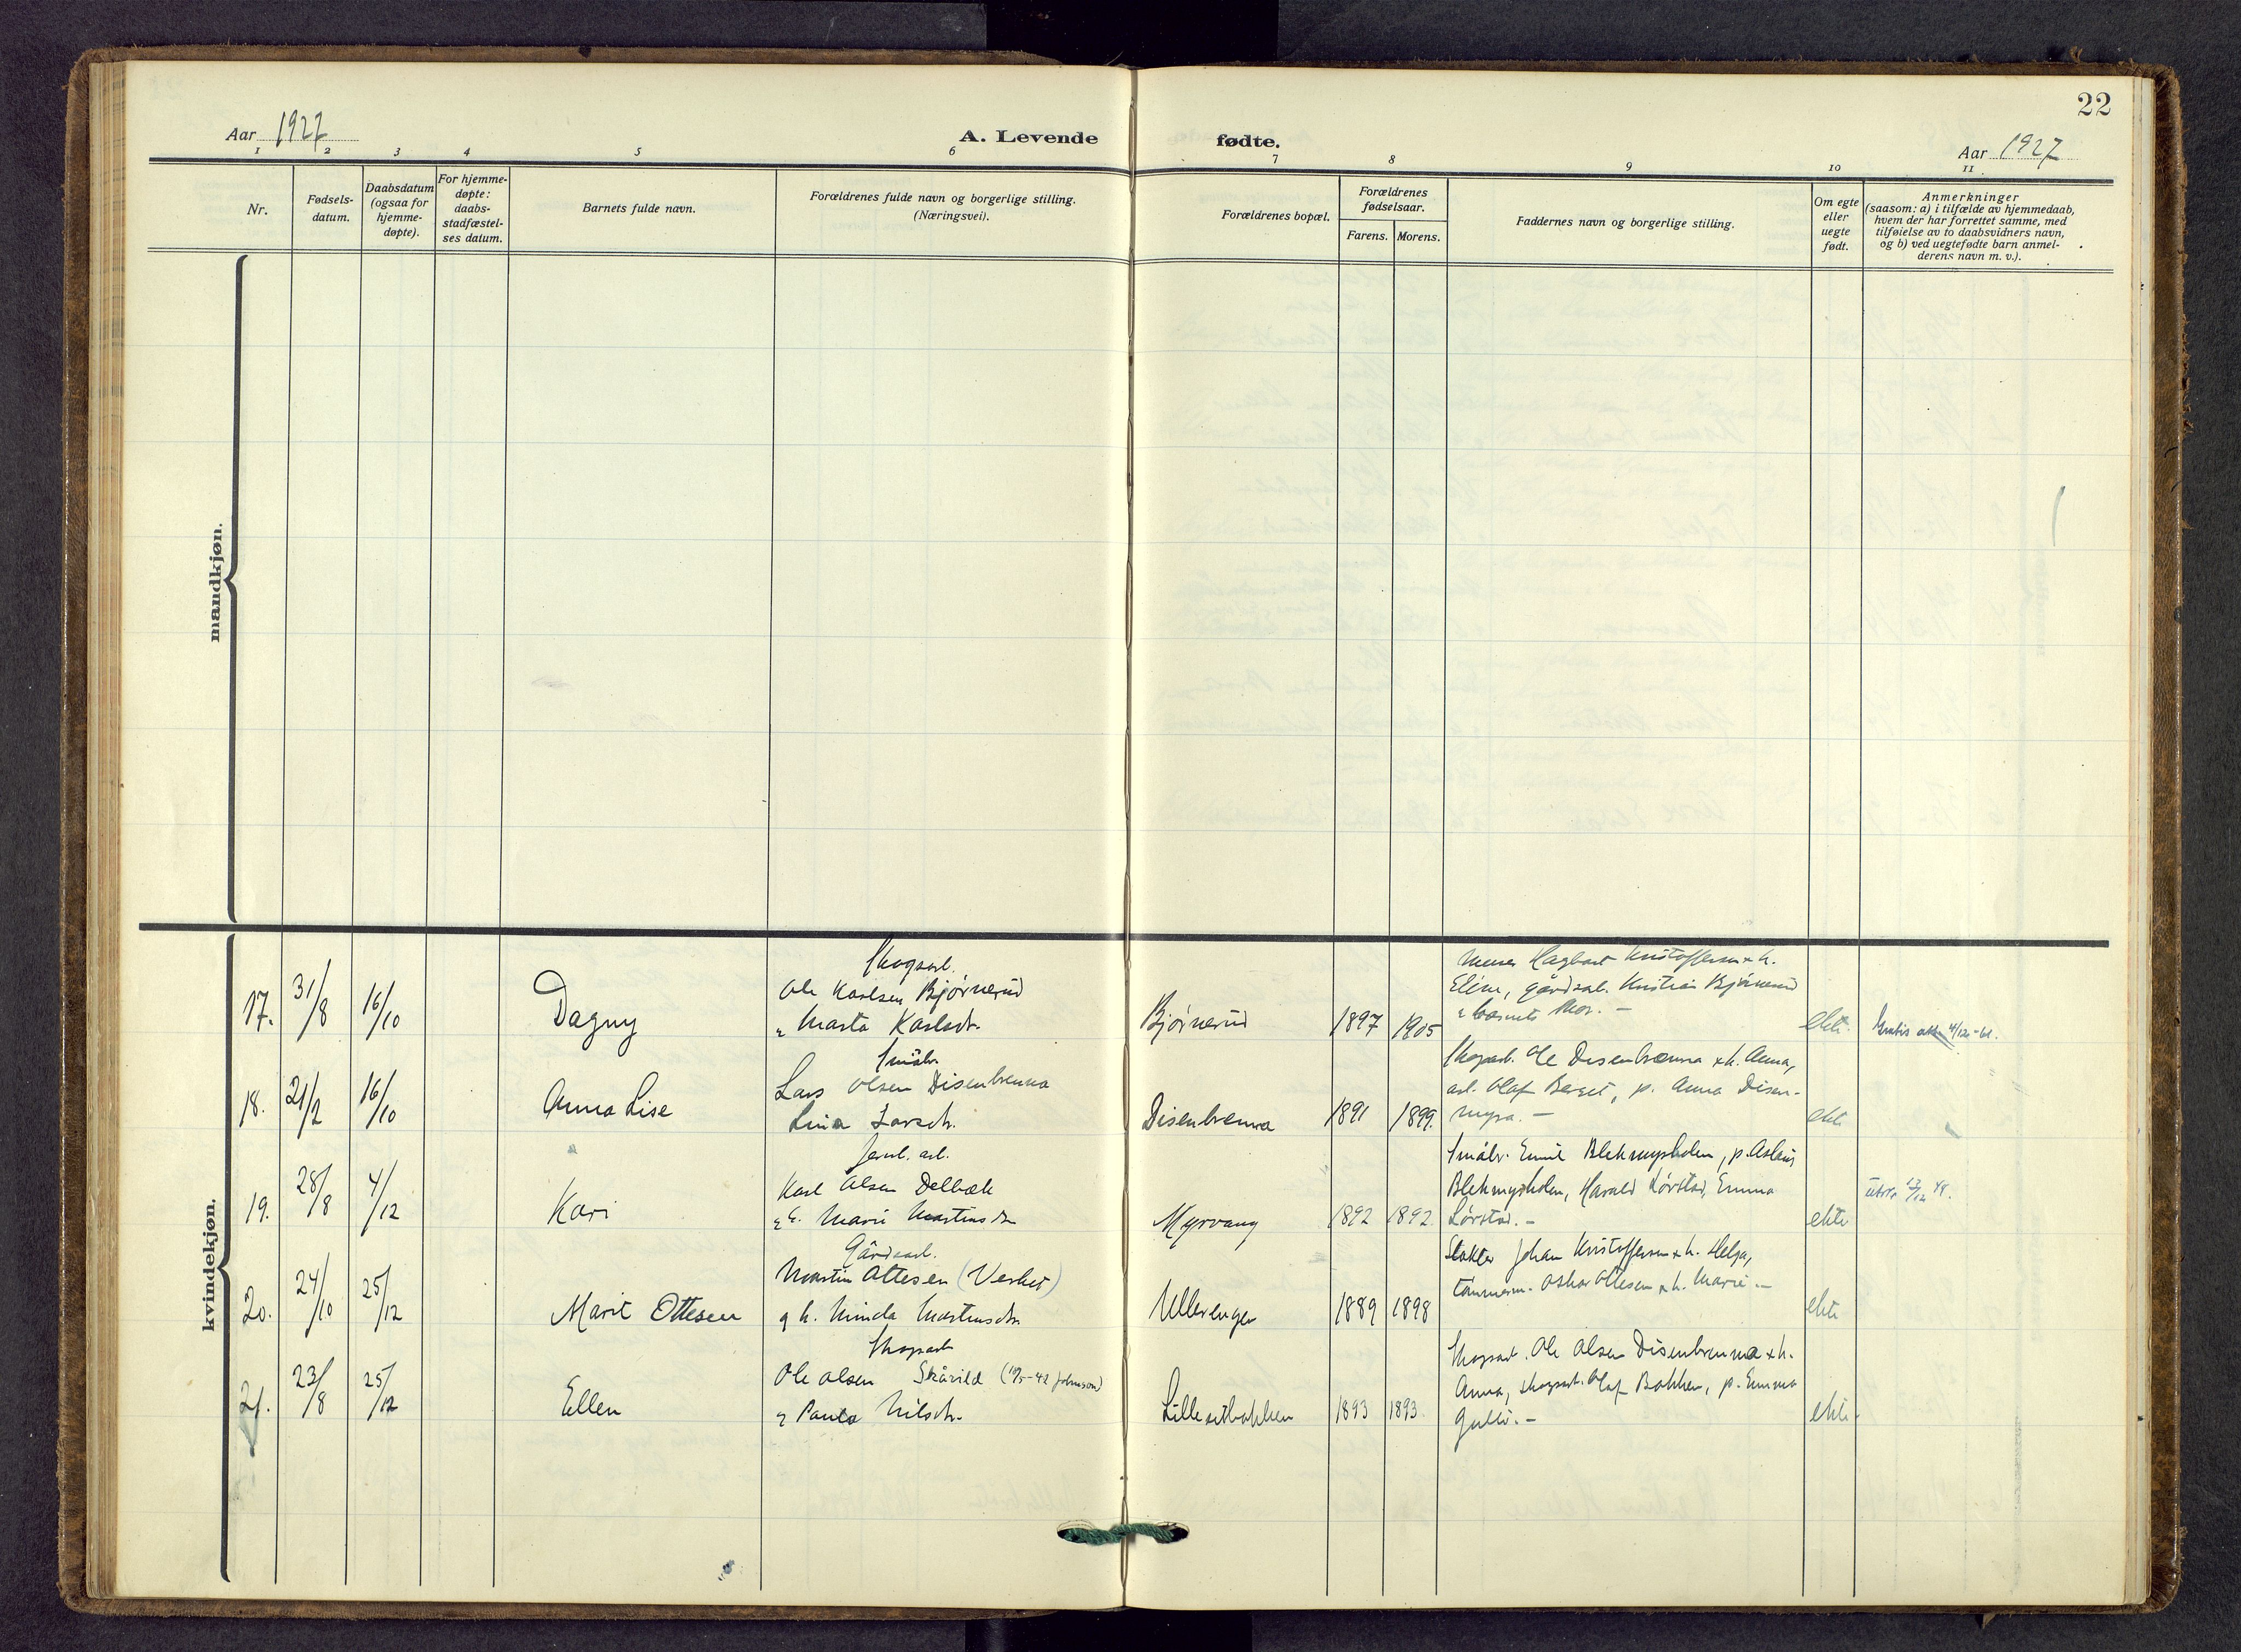 22
Aar 1927
A. Levende
fødte.
Aar 1927
1 2 3 4 5 6 7 8 9 10 11
Nr.
Fødsels-
datum.
Daabsdatum
(ogsaa for
hjemme-
døpte).
For hjemme-
døpte:
daabs-
stadfæstel-
ses datum.
Barnets fulde navn.
Forældrenes fulde navn og borgerlige stilling.
(Næringsvei).
Forældrenes bopæl.
Forældrenes
fødselsaar.
Farens. Morens.
Faddernes navn og borgerlige stilling.
Om egte
eller
uegte
født.
Anmerkninger
(saasom: a) i tilfælde av hjemmedaab,
hvem der har forrettet samme, med
tilføielse av to daabsvidners navn,
og b) ved uegtefødte barn anmel-
derens navn m. v.).
mandkjøn.
kvindekjøn.
17.
31/8
16/10
Dagny
Skogsarb.
Ole Karlsen Bjørnerud
Marta Karlsdr.
Bjørnerud
1897
1905
Hagbart Kristoffersen & h.
Eline, gårdsarb. Kristian Bjørnerud
& barnets Mor. -
ekte.
Gratis att 4/12-61.
18.
21/2
16/10
Anna Lise
Småbr.
Lars Olsen Disenbrenna
Lina Larsdr.
Disenbrenna
1891
1899.
Skogsarb. Ole Disenbrenna & h. Anna,
arb. Olaf Berget, p. Anna Disen-
myra. -
ekte
19.
28/8
4/12
Kari
Jernb. arb.
Karl Olsen Delbæk
Marie Martinsdr.
Myrvang
1892
1892.
Småbr. Emil Blekmyrholen, p. Aslaug
Blekmyrholen, Harald Lørstad, Emma
Lørstad. -
ekte
Utskr 12/12 49.
20.
24/10
25/12
Marit Ottesen
Gårdsarb.
Martin Ottesen (Verket)
og h. Minda Martinsdr.
Ullerengen
1889
1898
Slakter Johan Kristoffersen & h. Helga,
tømmerm. Oskar Ottesen & h. Marie. -
ekte
21.
23/8
25/12
Ellen
Skogsarb.
Ole Olsen Skårild
Paula Nilsdr.
Lillesetbakken
1893
1893.
Skogsarb. Ole Olsen Disenbrenna & h.
Anna, skogsarb. Olaf Bakken, p. Emma
ekte